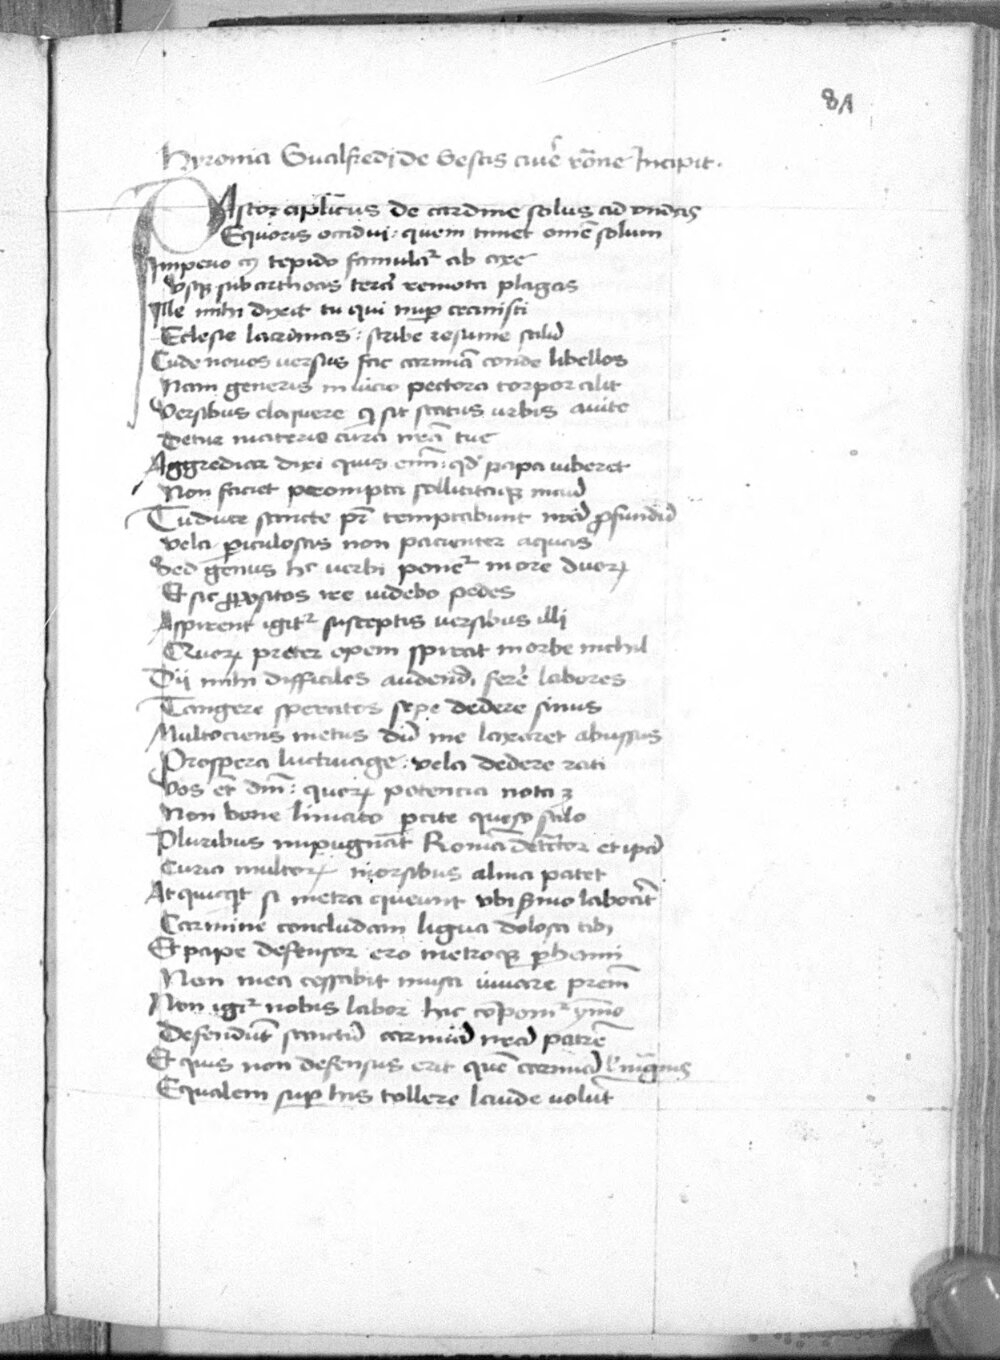 81
Hyronia Gualfredi de Gestis curie romane Incipit.
PAstor aplicus de cardine solus ad undas
Equoris occidui: quem timet omne solum
Imperio cuius tepido famulatur ab axe
Usque sub arthoas terra remota plagas
Ille mihi dixit tu qui nuper cecinisti
Eclesie lacrimas: scribe resume stilum
Cude novos versus fac carmina conde libellos
Nam generis in vicio pectora torpor alit
Versibus eloquere quis sit status urbis avite
Detur materie cura nostra tue
Aggrediar dixi quis enim quod papa iuberet
Non faciet prompta sollicitaque manu
Tu duce sancte pater temptabunt nostra profundum
Vela periculosas non pacienter aquas
Sed genus hic verbi ponetur more duorum
Et sic propositos ire videbo pedes
Aspirent igitur susceptis versibus illi
Quorum preter opem spirat in orbe nichil
Dii mihi difficiles audendi ferre labores
Tangere speratos sepe dedere sinus
Multociens metus dum me laxaret abyssus
Prospera luctivage: vela dedere rati
Vos et dominum: quorum potencia nota est
Non bone limato parcite queso stilo
Pluribus impugnant Romam detractor et ipsam
Curia multorum morsibus alma patet
At quicquid si metra queunt ubi sermo laborat
Carmine concludam ligua dolosa tibi
Et pape defensor ero metroque perhenni
Non mea cessabit musa iuvare premi
Non igitur nobis labor hic componitur ymmo
Defendunt sanctum carmina nostra patrem
Et quis non defensus erit quem carmina
Equalem super his tollere laude volunt